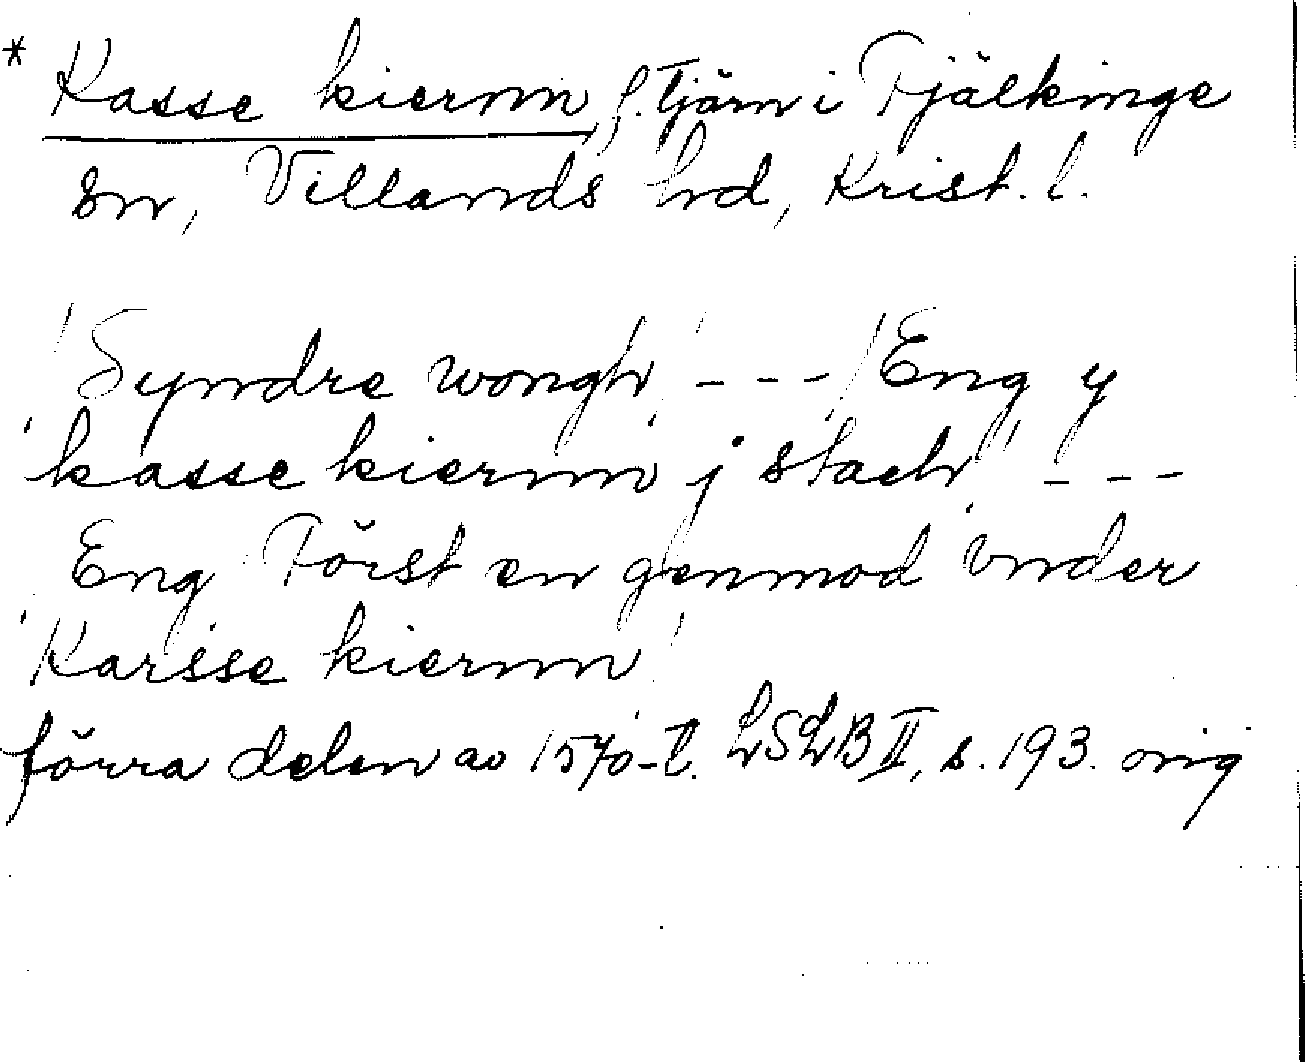 * Kasse kiernn, f. tjärn i Fjälkinge
sn, Villands hd, Krist. l.
'Syndre wongh' - - - 'Eng y
kasse kiernn j stach' - - -
'Eng Först en genmod vnder
Karsse kiernn'
förra delen av 1570-t. LSLB II, s. 193. orig